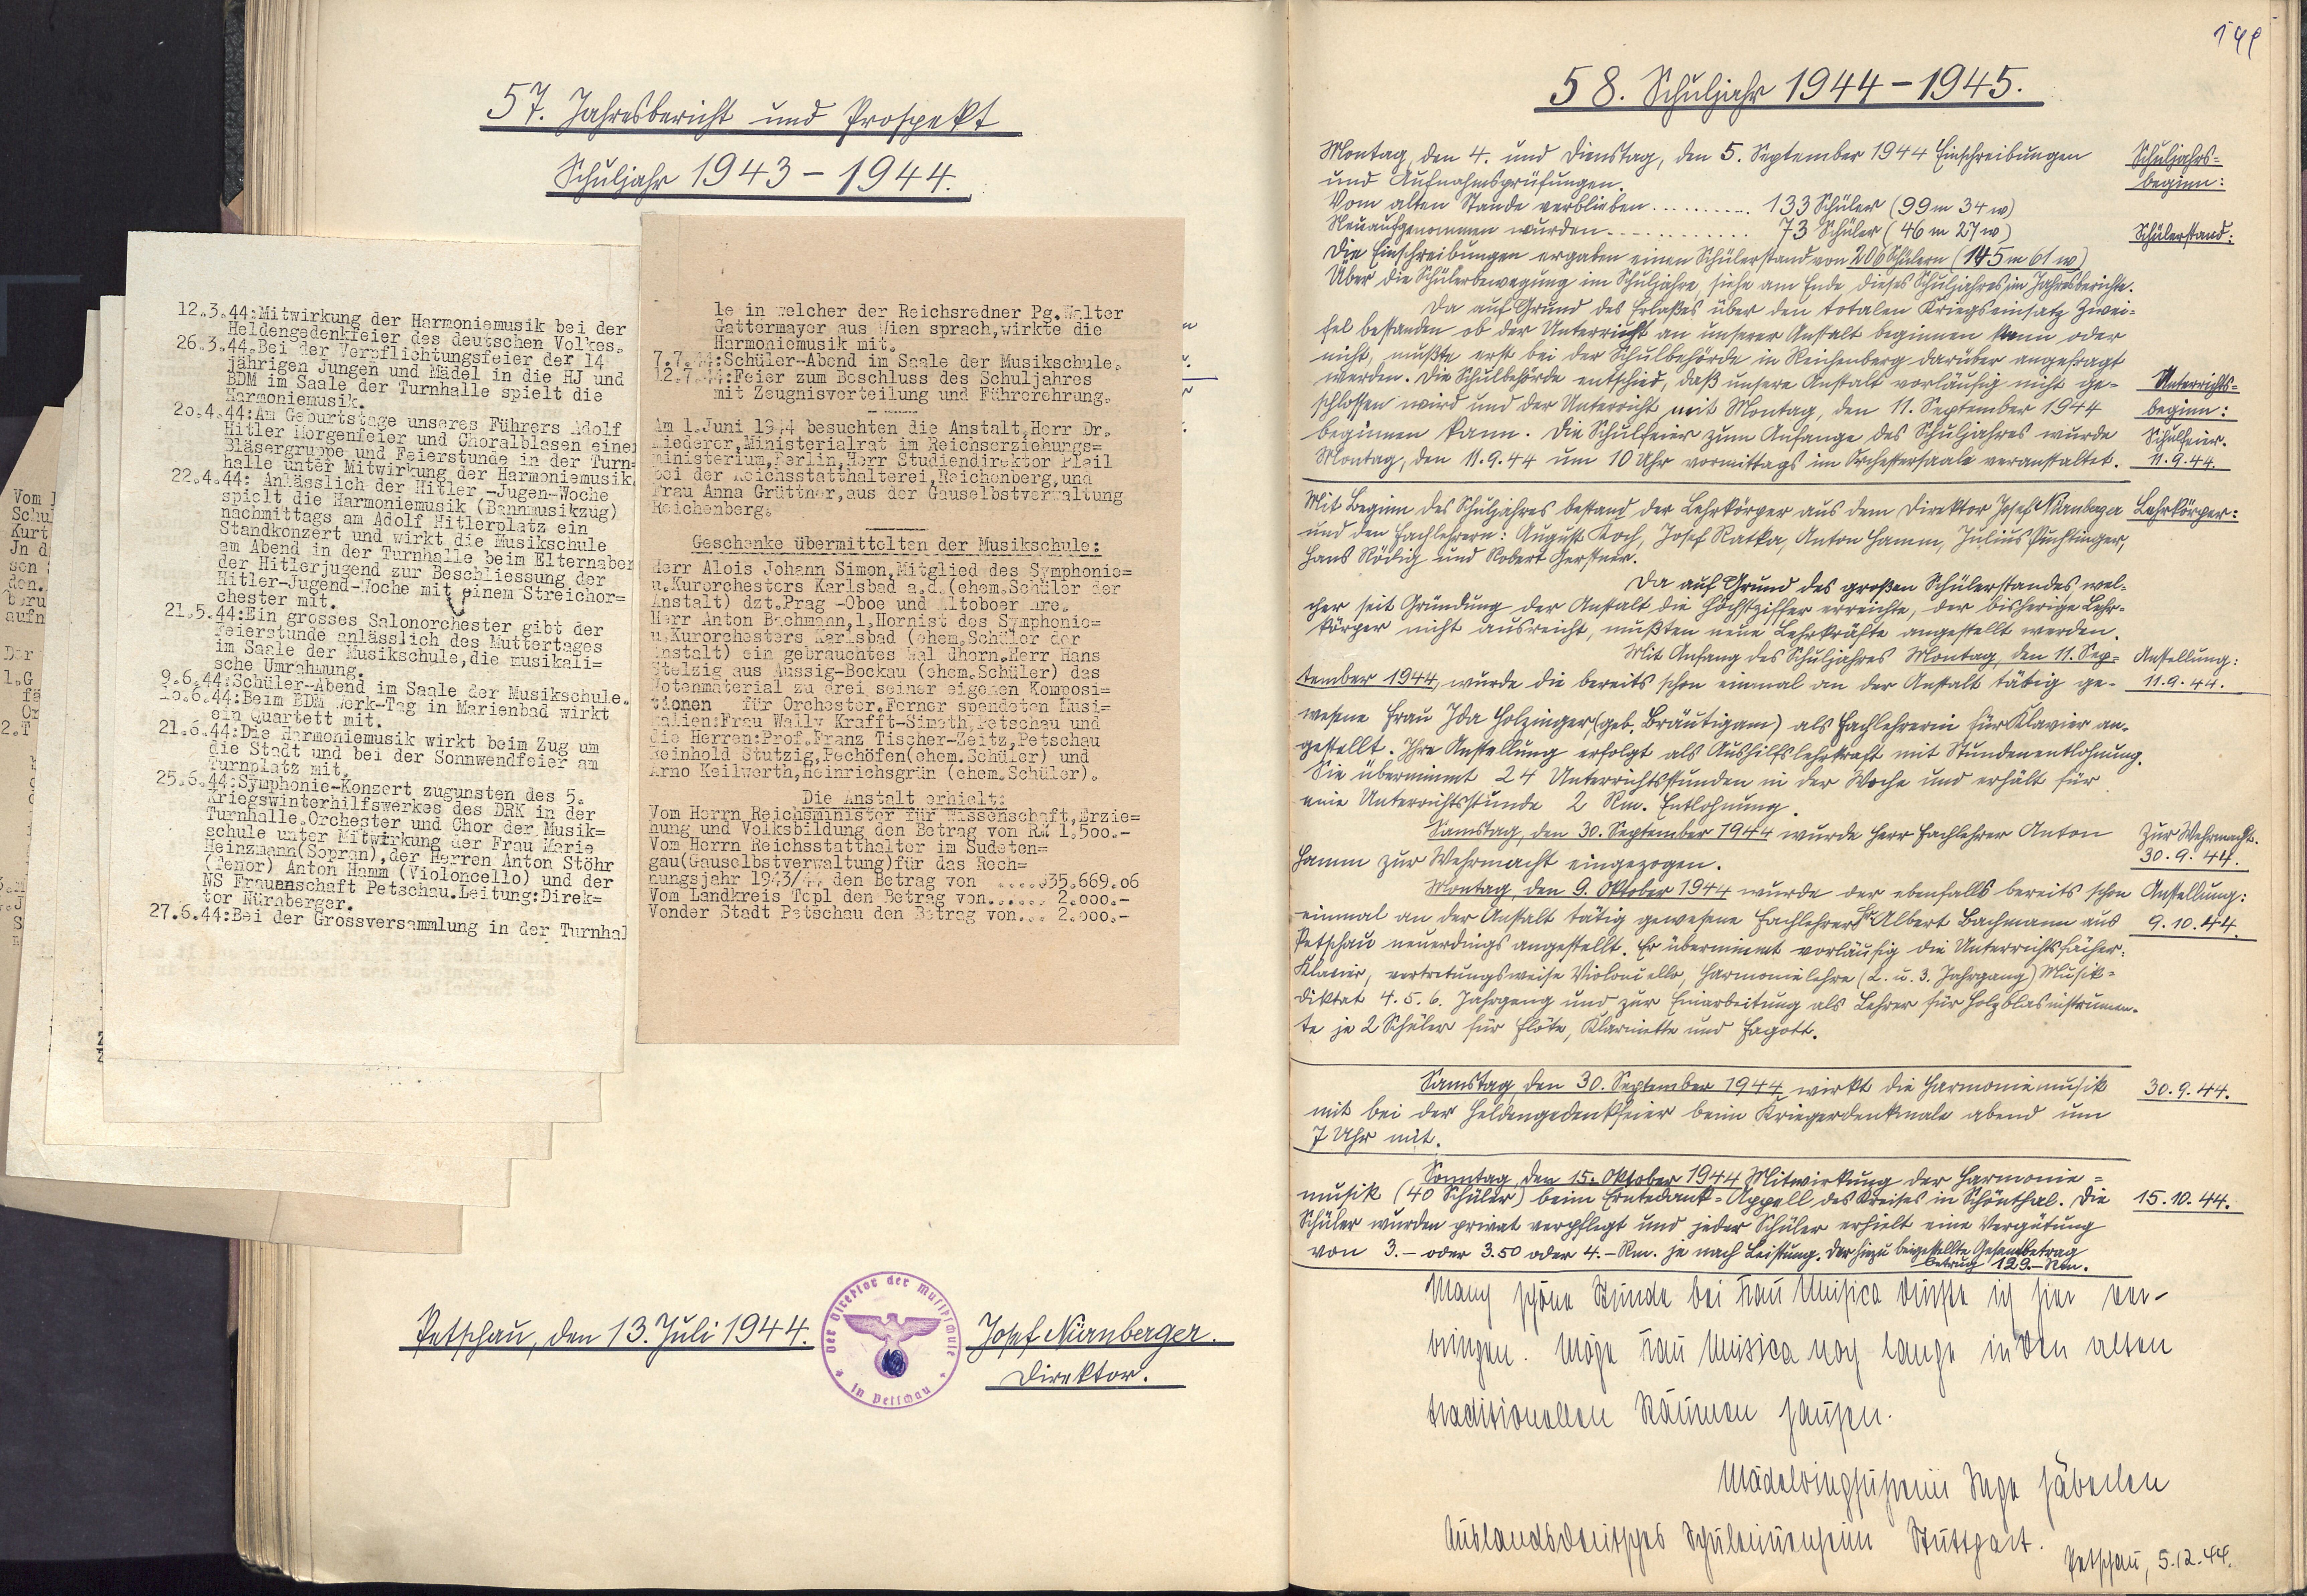 57. Jahresbericht und Prospekt
Schuljahr 1943 – 1944.
12.3.44:Mitwirkung der Harmoniemusik bei der
Heldengedenkfeier des deutschen Volkes.
26.3.44.Bei der Verpflichtungsfeier der 14
jährigen Jungen und Mädel in die HJ und
BDM im Saale der Turnhalle spielt die
Harmoniemusik.
2o.4.44:Am Geburtstage unseres Führers Adolf
Hitler Morgenfeier und Choralblasen einer
Bläsergruppe und Feierstunde in der Turn=
halle unter Mitwirkung der Harmoniemusik.
22.4.44: Anlässlich der Hitler -Jugen-Woche
spielt die Harmoniemusik (Bannmusikzug)
nachmittags am Adolf Hitlerplatz ein
Standkonzert und wirkt die Musikschule
am Abend in der Turnhalle beim Elternaben
der Hitlerjugend zur Beschliessung der
Hitler-Jugend-Woche mit einem Streichor=
chester mit.
21.5.44:Ein grosses Salonorchester gibt der
Feierstunde anlässlich des Muttertages
im Saale der Musikschule,die musikali=
sche Umrahmung.
9.6.44:Schüler-Abend im Saale der Musikschule.
1o.6.44:Beim BDM Werk-Tag in Marienbad wirkt
ein Quartett mit.
21.6.44:Die Harmoniemusik wirkt beim Zug um
die Stadt und bei der Sonnwendfeier am
Turnplatz mit.
25.6.44:Symphonie-Konzert zugunsten des 5.
Kriegswinterhilfswerkes des DRK in der
Turnhalle.Orchester und Chor der Musik=
schule unter Mitwirkung der Frau Marie
Heinzmann(Sopran),der Herren Anton Stöhr
(Tenor) Anton Hamm (Violoncello) und der
NS Frauenschaft Petschau.Leitung:Direk=
tor Nürnberger.
27.6.44:Bei der Grossversammlung in der Turnhal
le in welcher der Reichsredner Pg.Walter
Gattermayer aus Wien sprach,wirkte die
Harmoniemusik mit.
7.7.44:Schüler-Abend im Saale der Musikschule.
12.7.44:Feier zum Beschluss des Schuljahres
mit Zeugnisverteilung und Führerehrung.
Am 1.Juni 1944 besuchten die Anstalt,Herr Dr.
Miederer,Ministerialrat im Reichserziehungs=
ministerium,Berlin,Herr Studiendirektor Plail
bei der Reichsstatthalterei,Reichenberg,und
Frau Anna Grüttner,aus der Gauselbstverwaltung
Reichenberg.
Geschenke übermittelten der Musikschule:
Herr Alois Johann Simon,Mitglied des Symphonie=
u.Kurorchesters Karlsbad a.d.(ehem.Schüler der
Anstalt) dzt.Prag -Oboe und Altoboer hre.
Herr Anton Bachmann,1.Hornist des Symphonie=
u.Kurorchesters Karlsbad (ehem.Schüler der
Anstalt) ein gebrauchtes Wal dhorn.Herr Hans
Stelzig aus Aussig-Bockau (ehem.Schüler) das
Notenmaterial zu drei seiner eigenen Komposi=
tionen für Orchester.Ferner spendeten Musi=
kalien:Frau Wally Krafft-Simeth,Petschau und
die Herren:Prof.Franz Tischer-Zeitz,Petschau
Reinhold Stutzig,Pechöfen(ehem.Schüler) und
Arno Keilwerth,Heinrichsgrün (ehem.Schüler).
Die Anstalt erhielt:
Vom Herrn Reichsminister für Wissenschaft,Erzie=
hung und Volksbildung den Betrag von RM 1.5oo.-
Vom Herrn Reichsstatthalter im Sudeten=
gau(Gauselbstverwaltung)für das Rech=
nungsjahr 1943/44 den Betrag von .....35.669.o6
Vom Landkreis Tepl den Betrag von...... 2.ooo.-
Vonder Stadt Petschau den Betrag von... 2.ooo.-
Petschau, den 13. Juli 1944.
Der Direktor der Musikschule
in Petschau
Josef Nürnberger.
Direktor.
58. Schuljahr 1944 – 1945.
Montag, den 4. und Dienstag, den 5. September 1944 Einschreibungen
Schuljahrs=
und Aufnahmsprüfungen.
beginn:
Vom alten Stande verblieben .......... 133 Schüler (99 m 34 w)
Neuaufgenommen wurden ............. 73 Schüler (46 m 27 w)
Schülerstand:
Die Einschreibungen ergaben einen Schülerstand von 206 Schülern (145 m 61 w)
Über die Schülerbewegung im Schuljahre, siehe am Ende dieses Schuljahres im Jahresberichte.
Da auf Grund des Erlaßes über den totalen Kriegseinsatz Zwei=
fel bestanden ob der Unterricht an unserer Anstalt beginnen kann oder
nicht, mußte erst bei der Schulbehörde in Reichenberg darüber angefragt
werden. Die Schulbehörde entschied, daß unsere Anstalt vorläufig nicht ge=
Unterrichts=
schlossen wird und der Unterricht mit Montag, den 11. September 1944
beginn:
beginnen kann. Die Schulfeier zum Anfange des Schuljahres wurde
Schulfeier.
Montag, den 11.9.44 um 10 Uhr vormittags im Orchestersaale veranstaltet.
11.9.44.
Mit Beginn des Schuljahres bestand der Lehrkörper aus dem Direktor Josef Nürnberger
Lehrkörper:
und den Fachlehrern: August Koch, Josef Ratka, Anton Hamm, Julius Puchtinger,
Hans Rödig und Robert Gerstner.
Da auf Grund des großen Schülerstandes wel=
cher seit Gründung der Anstalt die Höchstziffer erreichte, der bisherige Lehr=
körper nicht ausreicht, mußten neue Lehrkräfte angestellt werden.
Mit Anfang des Schuljahres Montag, den 11. Sep=
Anstellung:
tember 1944, wurde die bereits schon einmal an der Anstalt tätig ge=
11.9.44.
wesene Frau Ida Holzinger (geb. Bräutigam) als Fachlehrerin für Klavier an=
gestellt. Ihre Anstellung erfolgt als Aushilfslehrkraft mit Stundenentlohnung.
Sie übernimmt 24 Unterrichtsstunden in der Woche und erhält für
eine Unterrichtsstunde 2 Rm. Entlohnung.
Samstag, den 30. September 1944 wurde Herr Fachlehrer Anton
Zur Wehrmacht.
Hamm zur Wehrmacht eingezogen.
30.9.44.
Montag, den 9. Oktober 1944 wurde der ebenfalls bereits schon
Anstellung:
einmal an der Anstalt tätig gewesene Fachlehrer Hr Albert Bachmann aus
9.10.44.
Petschau neuerdings angestellt. Er übernimmt vorläufig die Unterrichtsfächer:
Klavier, vertretungsweise Violoncello, Harmonielehre (2. u. 3. Jahrgang) Musik=
diktat 4. 5. 6. Jahrgang und zur Einarbeitung als Lehrer für Holzblasinstrumen=
te je 2 Schüler für Flöte, Klarinette und Fagott.
Samstag, den 30. September 1944 wirkt die Harmoniemusik
30.9.44.
mit bei der Heldengedenkfeier beim Kriegerdenkmale abend um
7 Uhr mit.
Sonntag, den 15. Oktober 1944 Mitwirkung der Harmonie=
musik (40 Schüler) beim Erntedank=Appell des Kreises in Schönthal. Die
15.10.44.
Schüler wurden privat verpflegt und jeder Schüler erhielt eine Vergütung
von 3.– oder 3.50 oder 4.– Rm. je nach Leistung. Der hiezu beigestellte Gesamtbetrag
betrug 129.– Rm.
Manch schöne Stunde bei Frau Musica durfte ich hier ver-
bringen. Möge Frau Musica noch lange in den alten
traditionellen Räumen hausen.
Mädelringführerin Inge
Auslandsdeutsches Schülerinnenheim Stuttgart.
Petschau, 5.12.44.